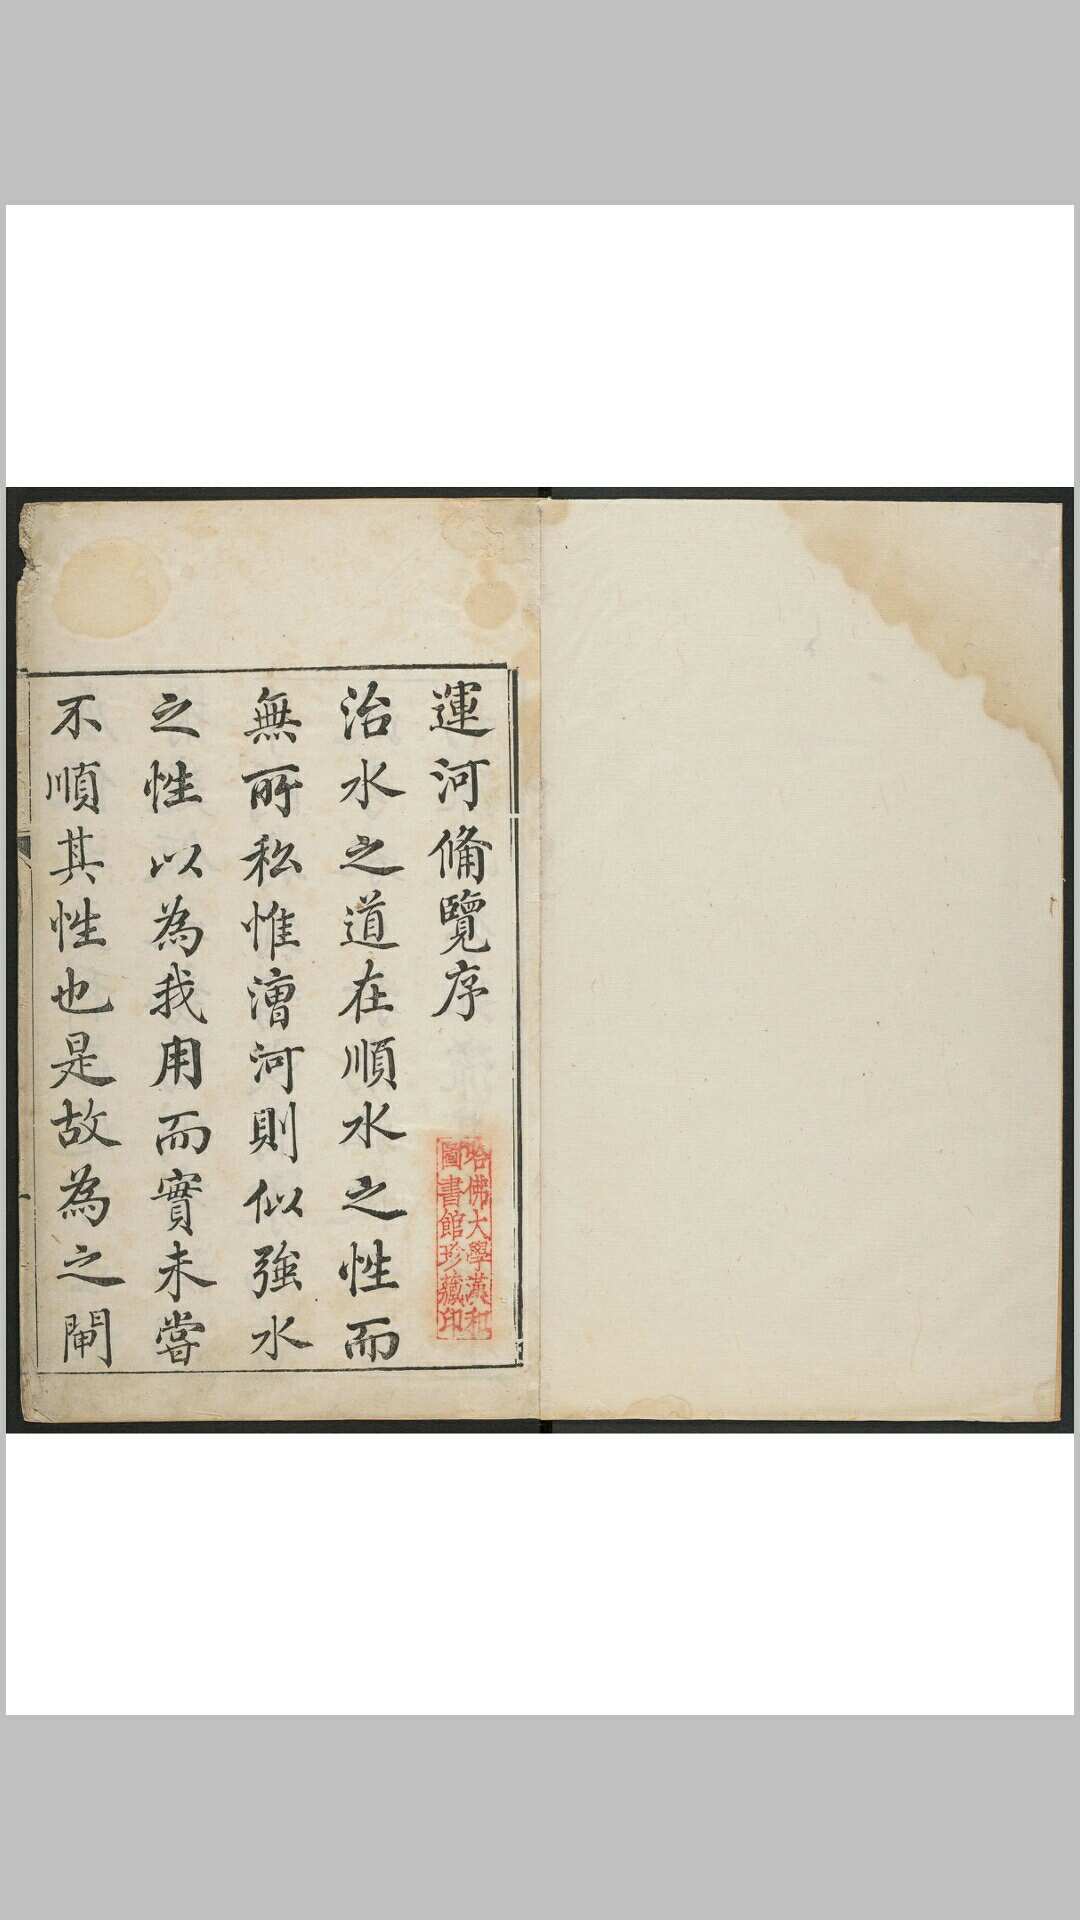 運河備覽序
治水之道在順水之性而
無所私惟漕河則似強水
之性以為我用而實未嘗
不順其性也是故為之閘
哈佛大學漢和
圖書館珍藏印